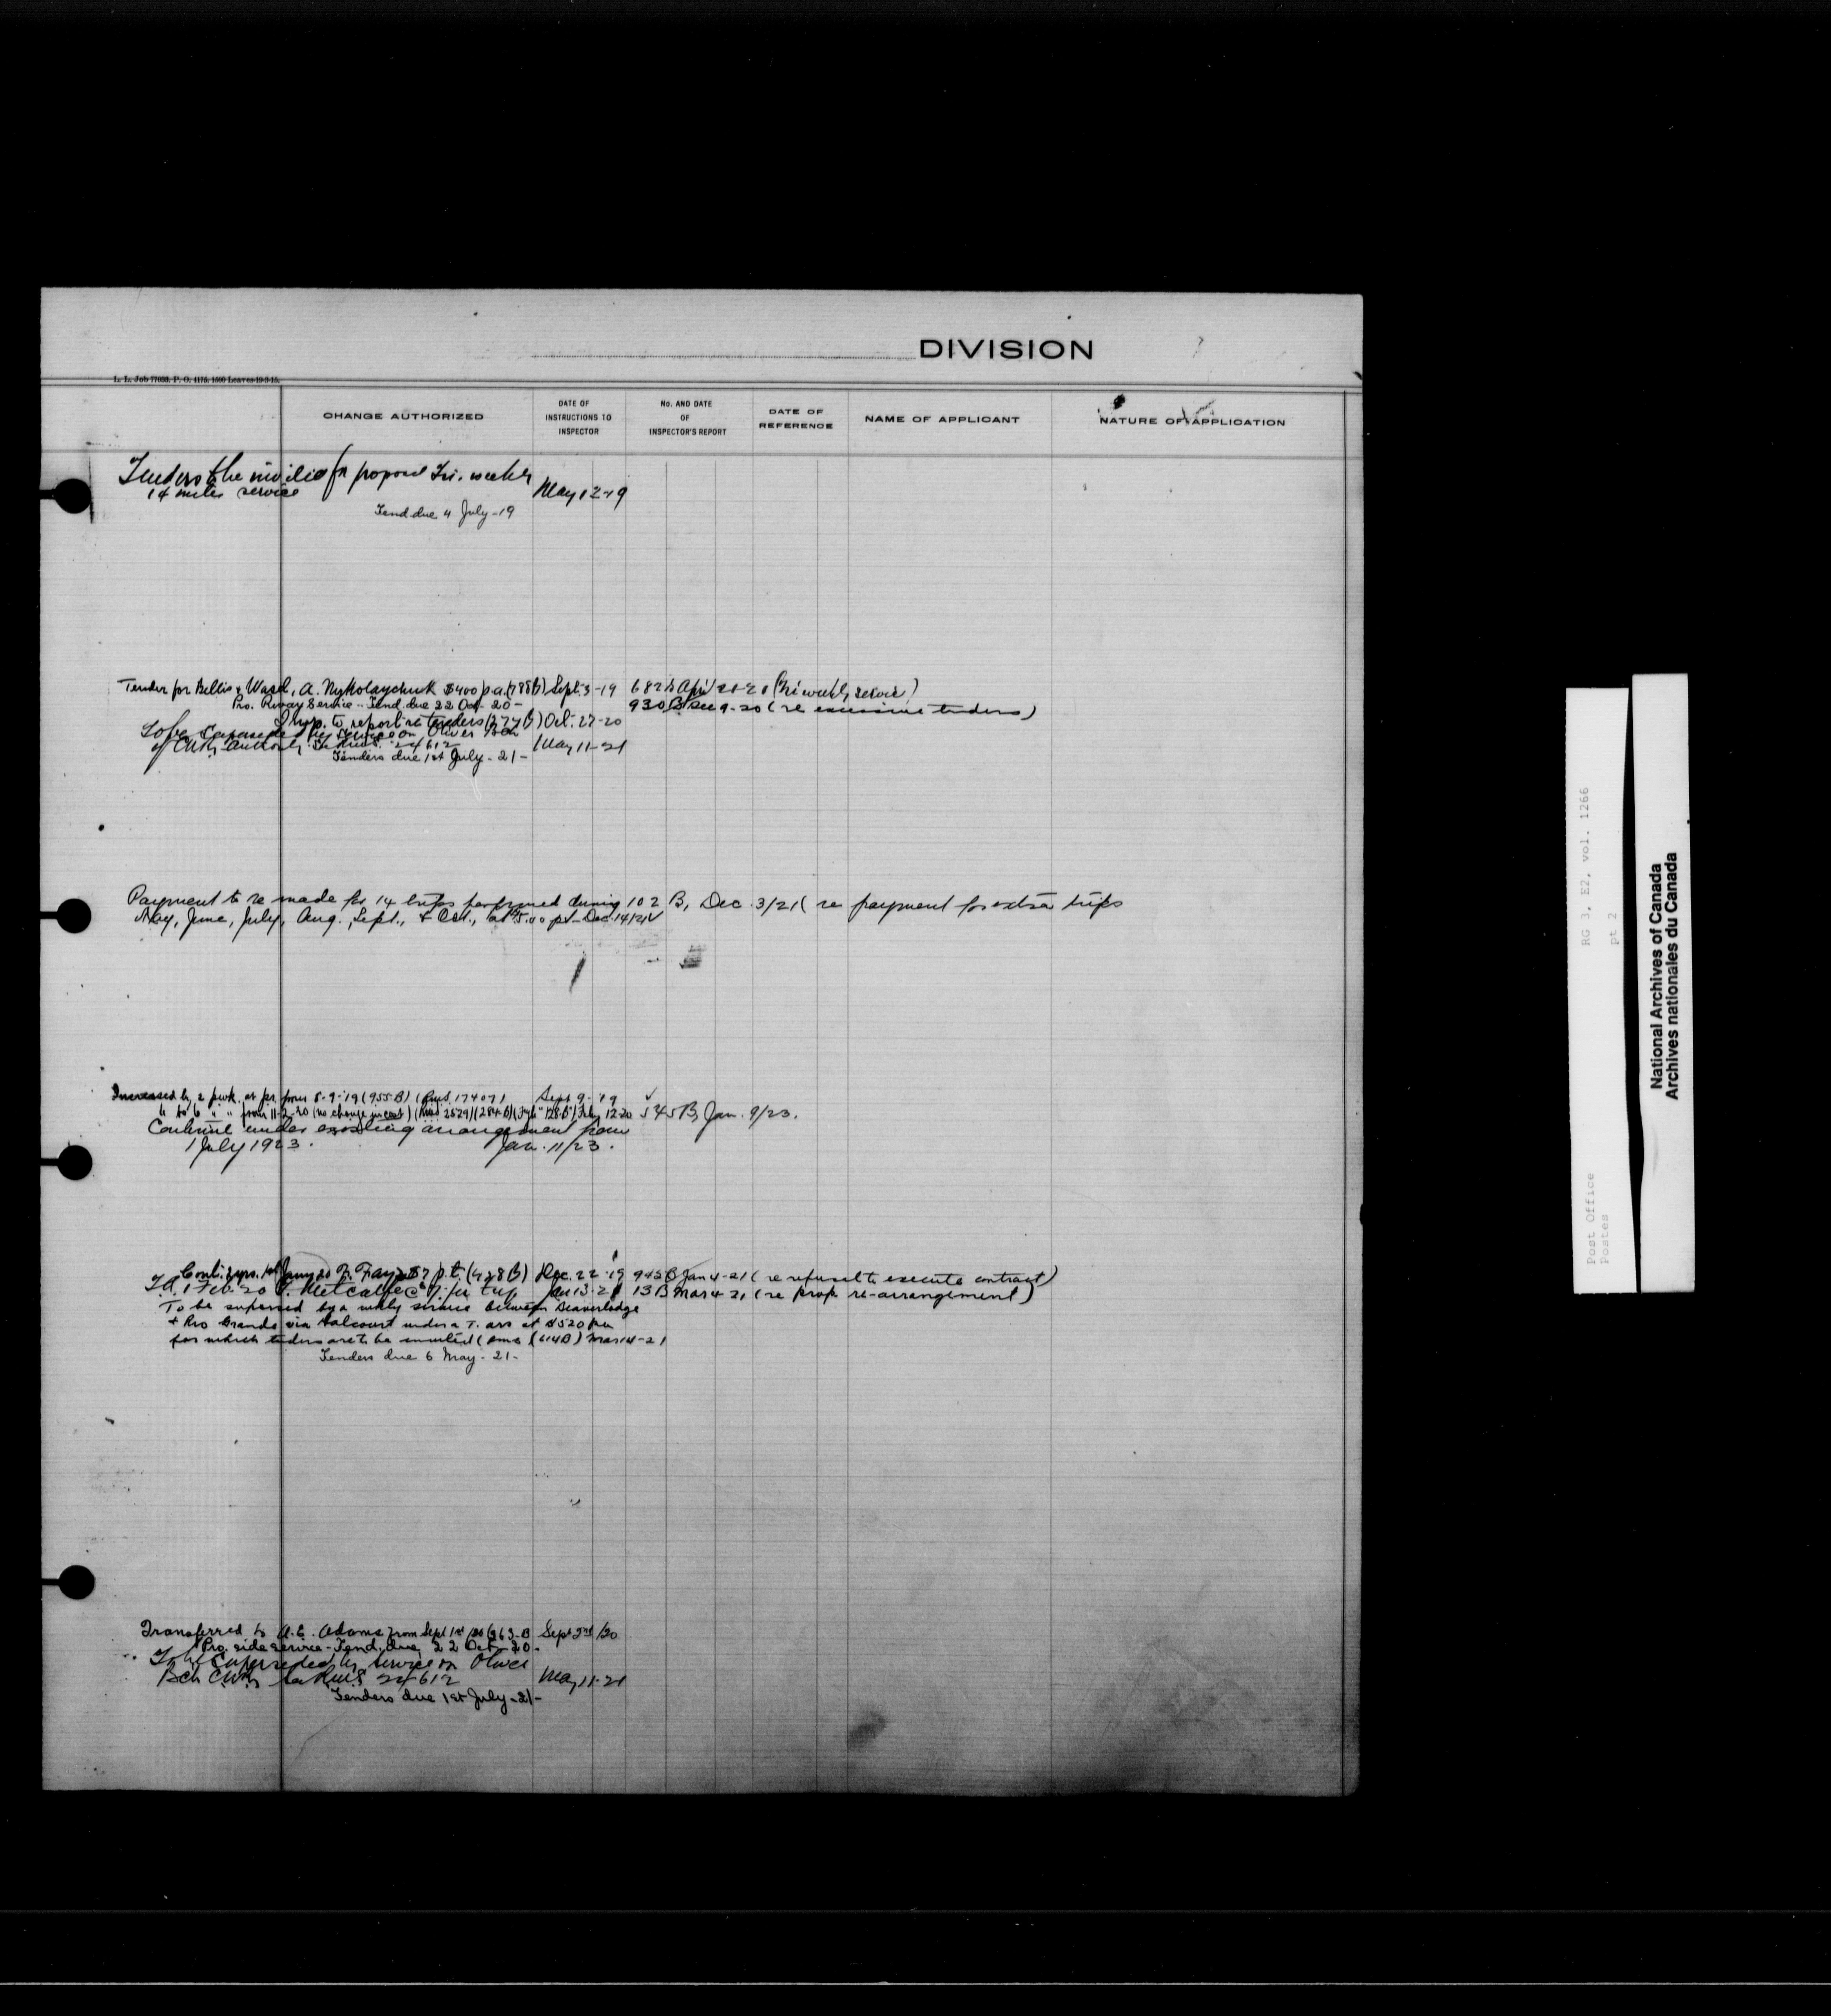 DIVISION
L. L. Job 77093. P. O. 4175. 1500 Leaves-19-3-15.
CHANGE AUTHORIZED
DATE OF INSTRUCTIONS TO INSPECTOR
No. AND DATE OF INSPECTOR'S REPORT
DATE OF REFERENCE
NAME OF APPLICANT
NATURE OF APPLICATION
Tenders to be invited for proposed Tri. weekly
14 miles service May 12-19
Tend. due 4 July-19
Tender for Bellis & Wasel, A. Nykolaychuk $400 p.a. (788B) Sept. 3-19 682B April 21-20 (Tri weekly service)
Pro. Rway Service - Tend. due 22 Oct-20- 930 B Dec 9-20 (re excessive tenders)
Insp. to report re tenders (277B) Oct. 27-20
To be superseded by service on Oliver Bch
of CNR, 24612 May 11-21
Tenders due 1st July-21-
Payment to be made for 14 trips performed during 102 B, Dec. 3/21 (re payment for extra trips
May, June, July, Aug., Sept., & Oct., at $5.00 pt - Dec. 14/21
Increased by 2 pwk. as for from 8-9-19 (955-B) (Rms. 17407) Sept 9-'19
" to 6 " " from 11-2-20 (no change in cost) (284 B) Feby 12-20 545 B, Jan. 9/23.
Continue under existing arrangement from
1 July 1923. Jan. 11/23.
Cont. 2 yrs. 1st Jany 20 F. Fay $7 p.t. (428 B) Dec. 22-'19 945 B Jan 4-21 (re refusal to execute contract)
T.A. 1 Feb. 20 Metcalfe @ $7. per trip Jan 13-21 13 B Mar 4 21 (re prop re-arrangement)
To be superseded by a weekly service between Beaverlodge
& Rio Grande via Halcourt under a T. arr at $520 pa
for which tenders are to be invited (614B) Mar 14-21
Tenders due 6 May-21-
Transferred to A.E. Adams from Sept 1st/20 (363-B Sept 2nd/20
Pro. side service - Tend. due 22 Oct-20-
To be superseded by service on Oliver
Bch CNR, 24612 May 11-21
Tenders due 1st July-21-
RG 3, E2, vol. 1266
pt 2
Post Office
Postes
National Archives of Canada
Archives nationales du Canada